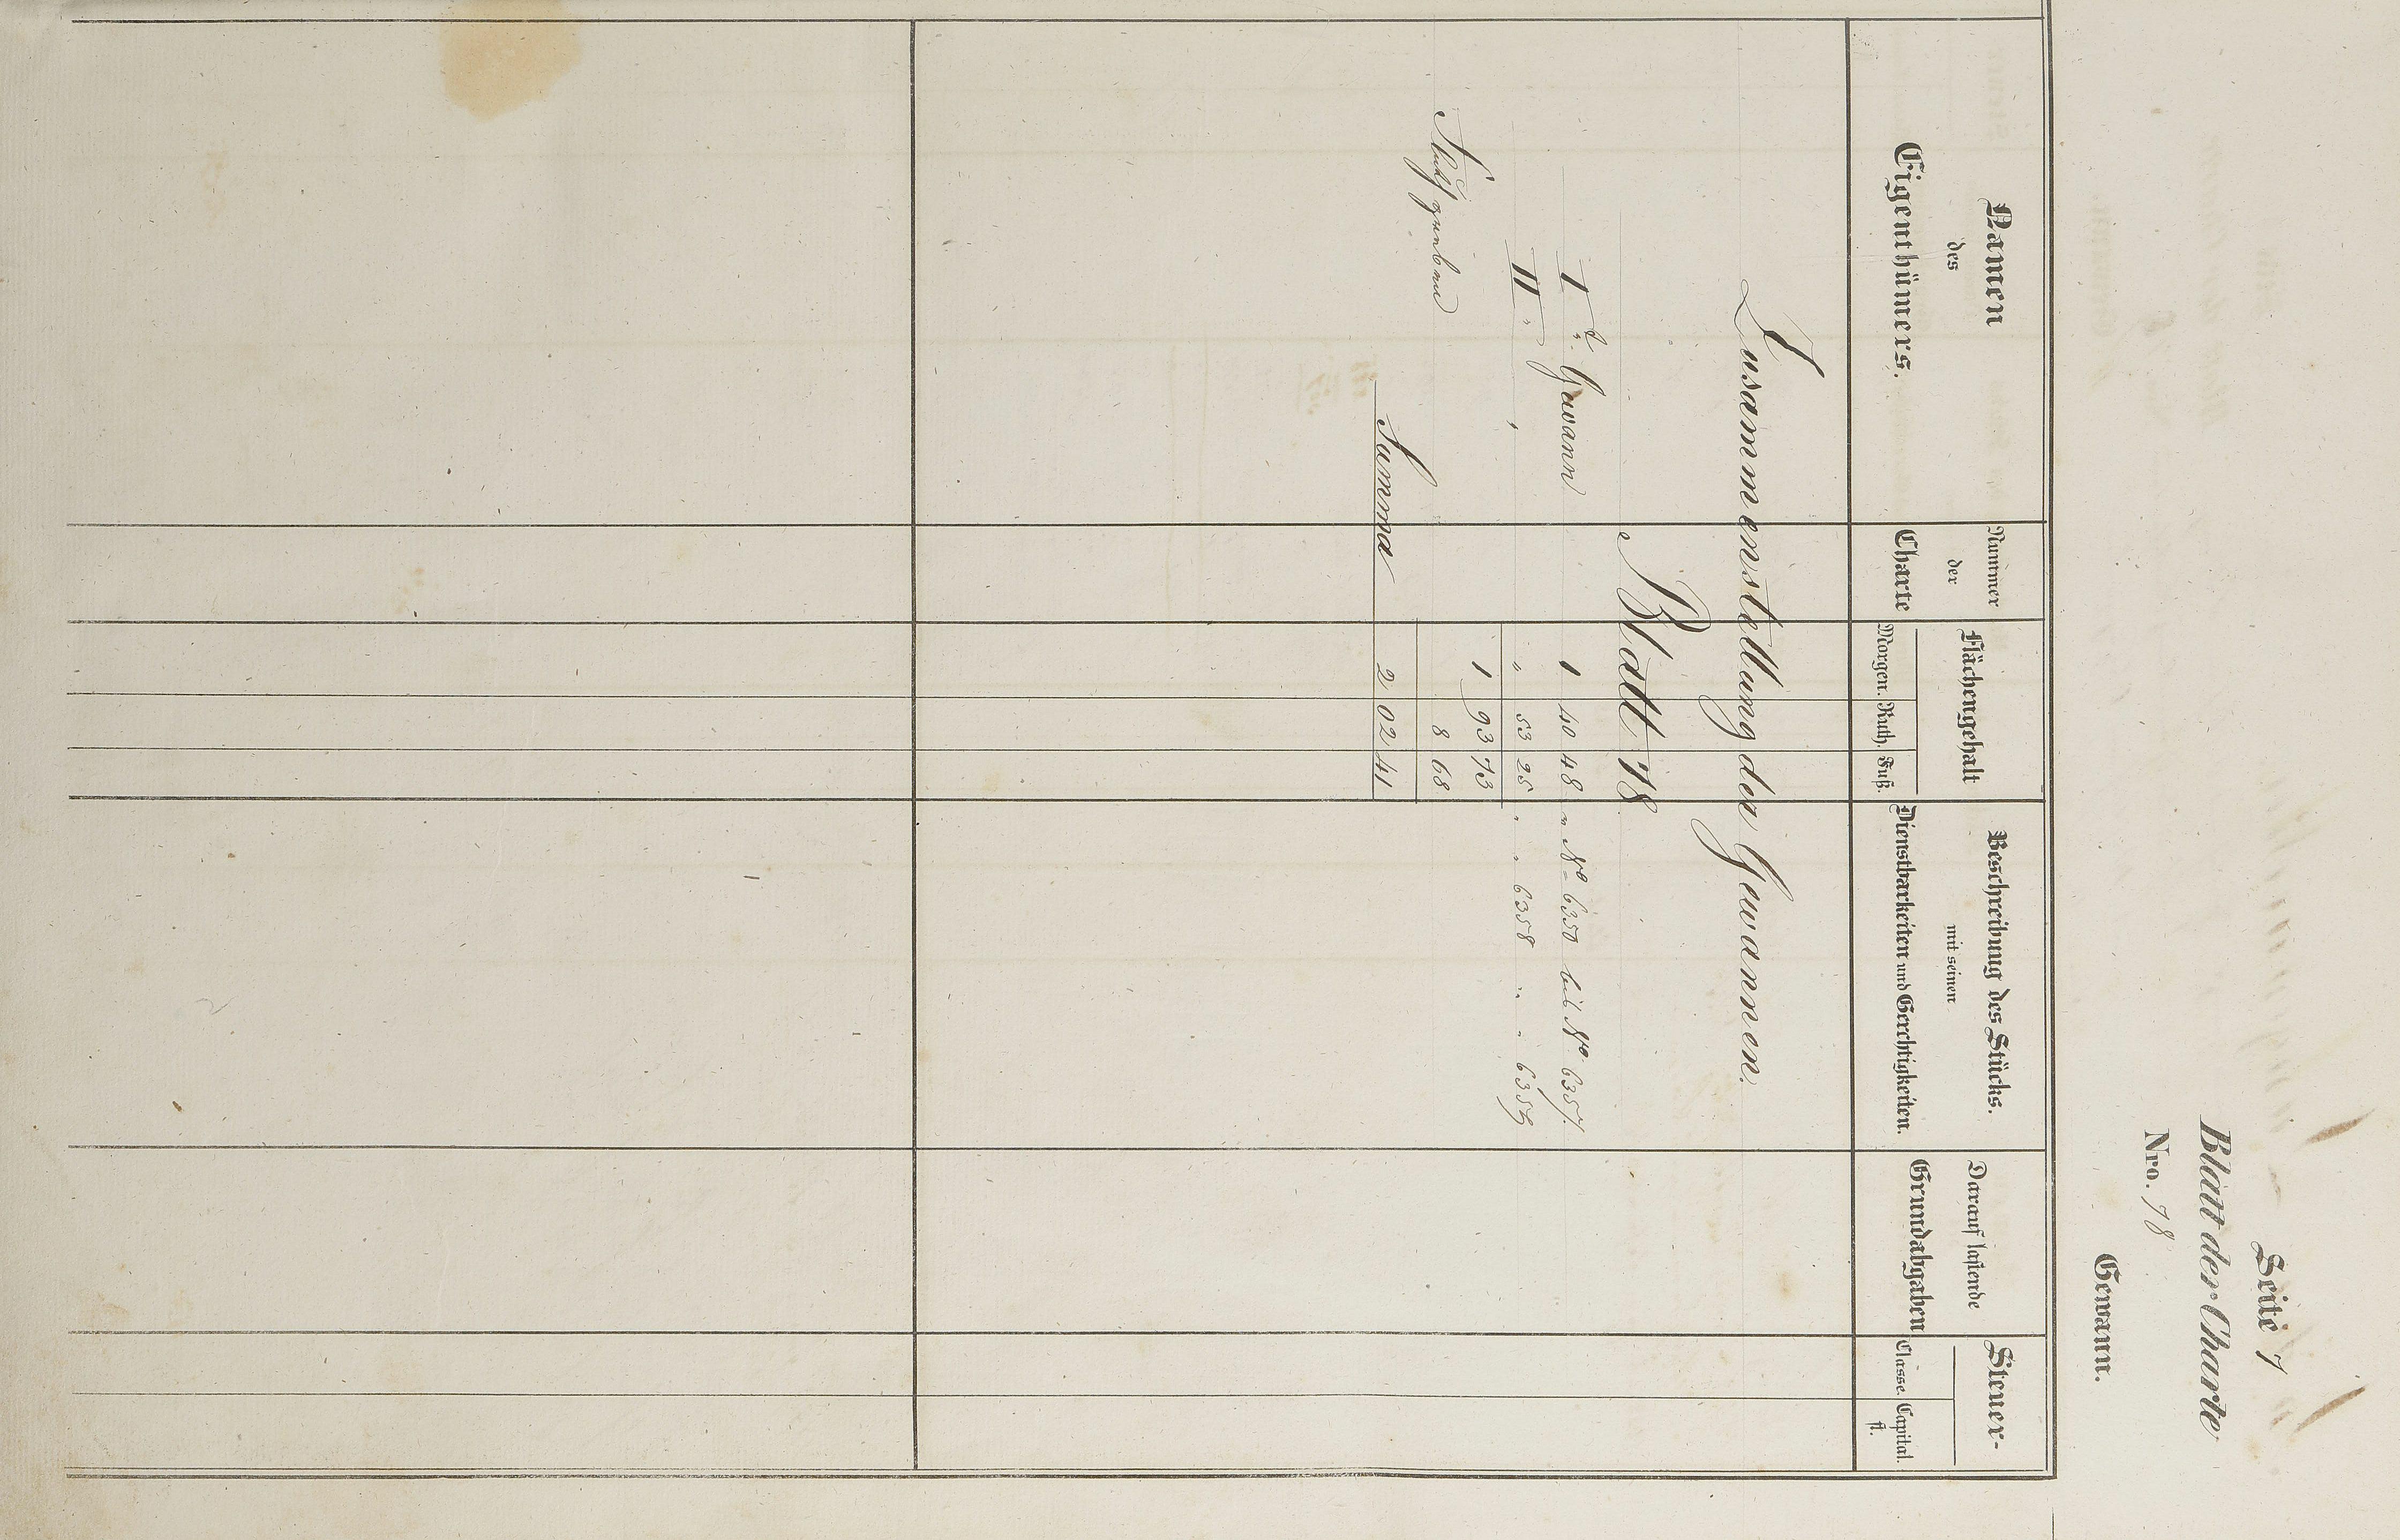 Seite 7
Blatt der Charte
Nro. 78
Gewann.
Namen des Eigenthümers.
Nummer der Charte
Flächengehalt
Morgen. Ruth. Fuß.
Beschreibung des Stücks.
mit seinen
Dienstbarkeiten und Gerechtigkeiten.
Darauf lastende
Grundabgaben
Steuer-
Classe. Capital.
fl.
Zusammenstellung der Gewannen.
Blatt 78
I te Gewann 1 40 48 " No 6350 bis No 6357.
II " " " 53 25 " " 6358 " " 6359
1 93 73
8 68
Summa 2 02 41